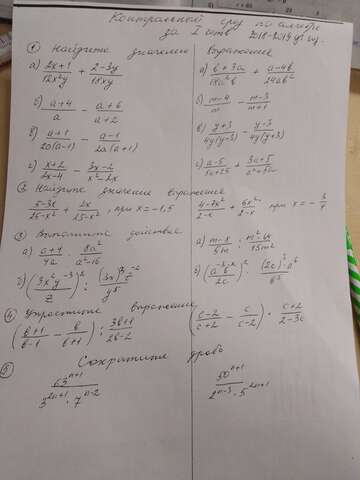 Контрольный срез по алгебре
за I 2018-2019 уч. год.
① Найдите значение выражения
а) (2x+1)/(12x²y) + (2-3y)/(18xy)    а) (b+3a)/(18a²b) + (a-4b)/(24ab²)
б) (a+4)/a - (a+6)/(a+2)    б) (m-4)/m - (m-3)/(m+1)
в) (a+1)/(2a(a-1)) - (a-1)/(2a(a+1))    в) (y+3)/(4y(y-3)) - (y-3)/(4y(y+3))
г) (x+2)/(2x-4) - (3x-2)/(x²-2x)    г) (a-5)/(5a+25) + (3a+5)/(a²+5a)
2 Найдите значение выражения
(5-3x)/(25-x²) + 2x/(25-x²), при x = -1,5    (4-7x²)/(2-x) + 6x²/(2-x) при x = -3/4
③ Выполните действие
а) (a+4)/4a · 8a²/(a²-16)    а)
б) (3x²y⁻³/z)² :    б)
④ Упростите выражение
((b+1)/(b-1) - b/(b+1)) : (3b+1)/(2b-2)    ((c-2)/(c+2) - c/(c-2)) · (c+2)/(2-3c)
⑤ Сократите дробь
63ⁿ⁺¹/(3²ⁿ⁺¹ · 7ⁿ⁻²)    50ⁿ⁺¹/(2ⁿ⁻³ · 5²ⁿ⁺¹)